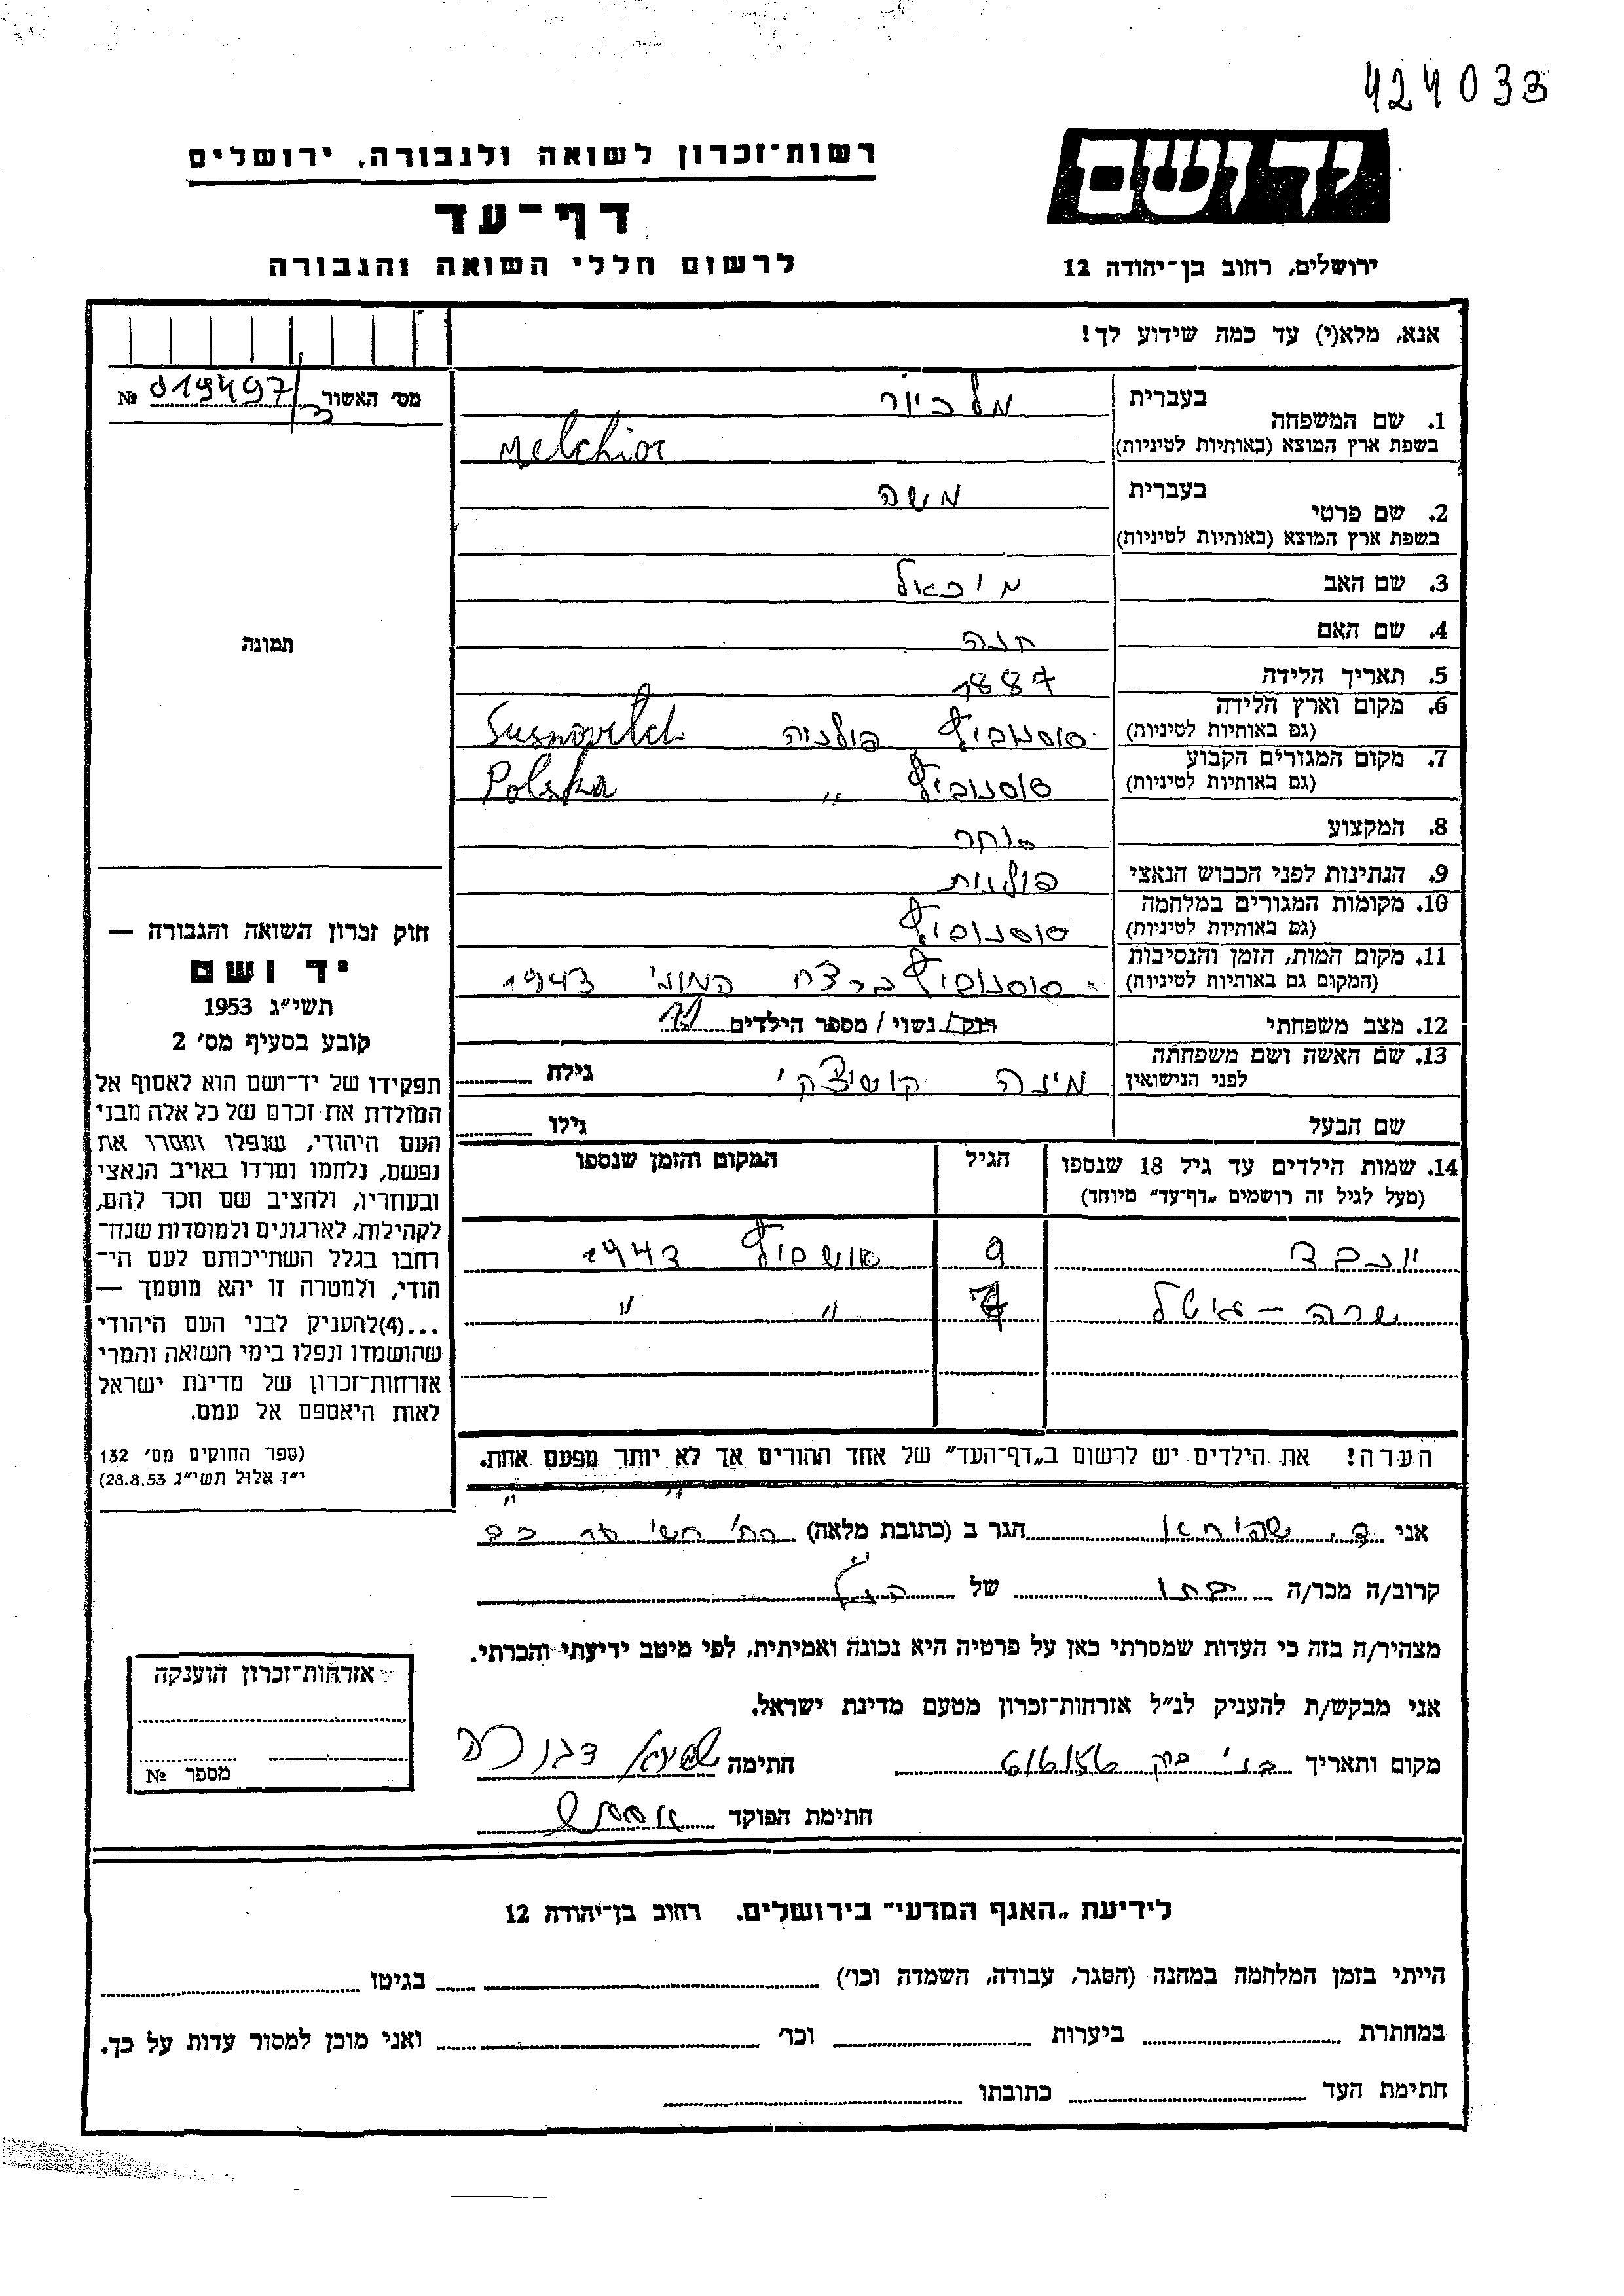 424033
רשות־זכרון לשואה ולגבורה, ירושלים
יד ושם
דף־עד
לרשום חללי השואה והגבורה
ירושלים, רחוב בן־יהודה 12
אנא, מלא(י) עד כמה שידוע לך!
מס׳ האשור 019497/ №
1. שם המשפחה בעברית מלכיור
בשפת ארץ המוצא (באותיות לטיניות) Melchior
2. שם פרטי בעברית משה
בשפת ארץ המוצא (באותיות לטיניות)
3. שם האב מיכאל
4. שם האם חנה
5. תאריך הלידה 1887
6. מקום וארץ הלידה (גם באותיות לטיניות) סוסנוביץ פולניה Susnovitch
7. מקום המגורים הקבוע (גם באותיות לטיניות) סוסנוביץ " Polska
8. המקצוע סוחר
9. הנתינות לפני הכבוש הנאצי פולנית
10. מקומות המגורים במלחמה (גם באותיות לטיניות) סוסנוביץ
11. מקום המות, הזמן והנסיבות (המקום גם באותיות לטיניות) סוסנוביץ ברצח המוני 1943
12. מצב משפחתי רוק/ נשוי / מספר הילדים 11
13. שם האשה ושם משפחתה לפני הנישואין מינה קושיצקי גילה
שם הבעל גילו
14. שמות הילדים עד גיל 18 שנספו הגיל המקום והזמן שנספו
(מעל לגיל זה רושמים „דף־עד״ מיוחד)
יוכבד 9 אושביץ 1943
שרה – גיטל 7 " "
הערה! את הילדים יש לרשום ב„דף־העד״ של אחד ההורים אך לא יותר מפעם אחת.
תמונה
חוק זכרון השואה והגבורה —
יד ושם
תשי״ג 1953
קובע בסעיף מס׳ 2
תפקידו של יד־ושם הוא לאסוף אל
המולדת את זכרם של כל אלה מבני
העם היהודי, שנפלו ומסרו את
נפשם, נלחמו ומרדו באויב הנאצי
ובעוזריו, ולהציב שם וזכר להם,
לקהילות, לארגונים ולמוסדות שנח־
רבו בגלל השתייכותם לעם הי־
הודי, ולמטרה זו יהא מוסמך —
...(4)להעניק לבני העם היהודי
שהושמדו ונפלו בימי השואה והמרי
אזרחות־זכרון של מדינת ישראל
לאות היאספם אל עמם.
(ספר החוקים מס׳ 132
י״ז אלול תשי״ג 28.8.53)
אני ד. הגר ב (כתובת מלאה)
קרוב/ה מכר/ה בתו של הנ״ל
מצהיר/ה בזה כי העדות שמסרתי כאן על פרטיה היא נכונה ואמיתית, לפי מיטב ידיעתי והכרתי.
אני מבקש/ת להעניק לנ״ל אזרחות־זכרון מטעם מדינת ישראל.
מקום ותאריך בני ברק 6/6/56 חתימה דבורה
חתימת הפוקד
אזרחות־זכרון הוענקה
מספר №
לידיעת „האגף המדעי״ בירושלים. רחוב בן־יהודה 12
הייתי בזמן המלחמה במחנה (הסגר, עבודה, השמדה וכו׳) בגיטו
במחתרת ביערות וכו׳ ואני מוכן למסור עדות על כך.
חתימת העד כתובתו